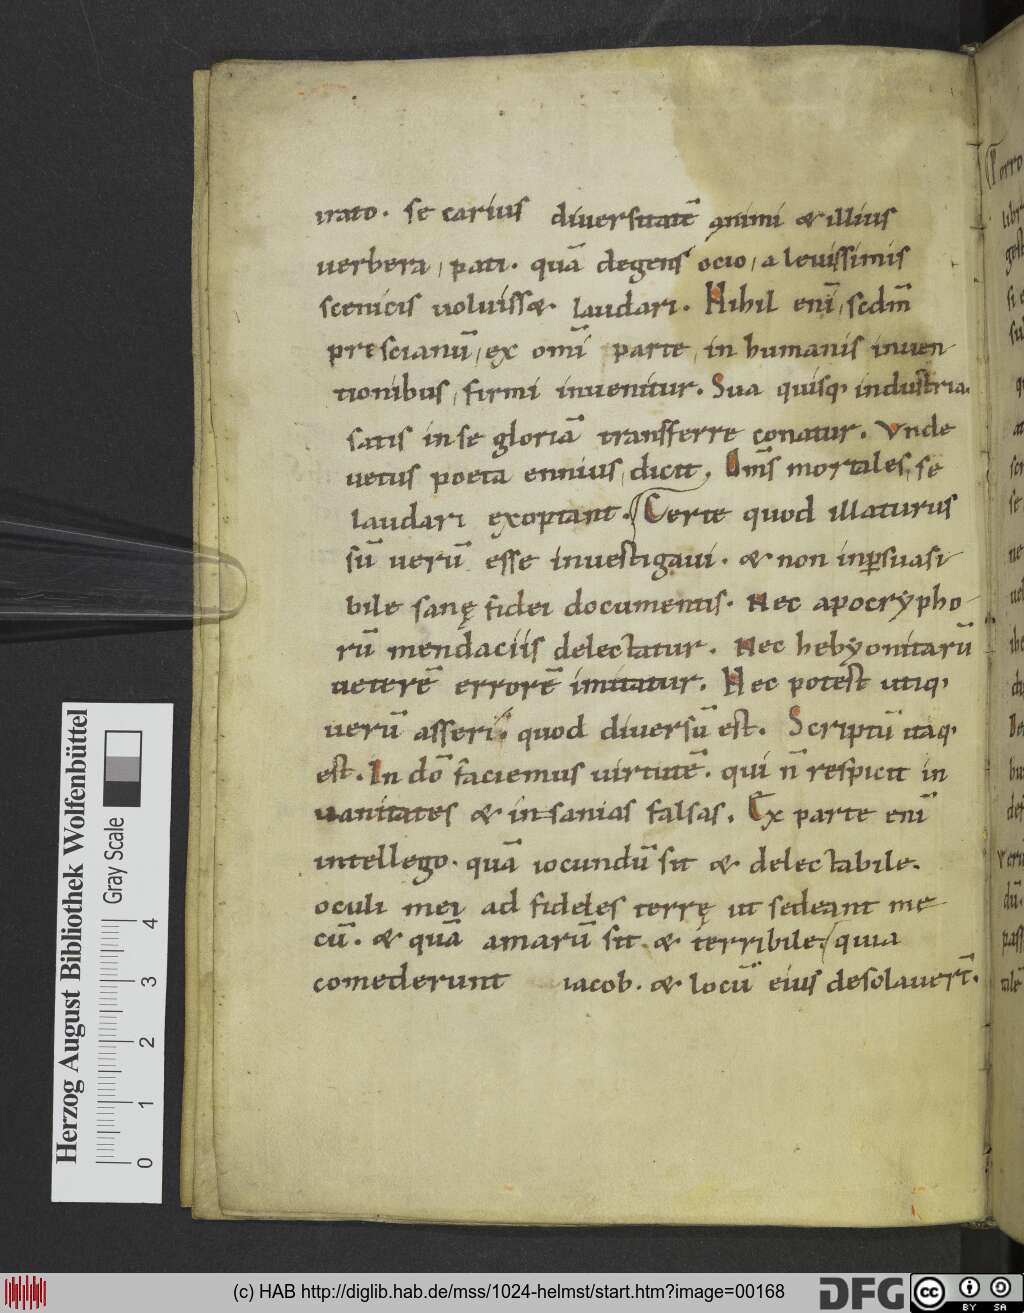 urato. se carius diuersitatē animi & illius
uerbera, pati. quā degens ocio, a leuissimis
scenicis uoluiss&. laudari. Nihil enī, scdm̄
prescianū, ex omī parte, in humanis inuen
tionibus, firmi inuenitur. Sua quisq, industria.
satis in se gloriā transferre conatur. Vnde
uetus poeta ennius, dicit. Om̄s mortales, se
laudari exoptant. Certe quod illaturus
sū uerū esse inuestigaui. & non inp̲suasi
bile sanę fidei documentis. Nec apocrypho
rū mendaciis delectatur. Nec hebyonitarū
ueterē errorē imitatur. Nec potest utiq,
uerū asseri. quod diuersū est. Scriptū itaq,
est. In dō faciemus uirtutē. qui n̄ respicit in
uanitates & in sanias falsas. Ex parte enī
intellego. quā iocundū sit & delectabile.
oculi mei ad fideles terrę ut sedeant me
cū. & quā amarū sit & terribile. quia
comederunt iacob. & locū eius desolauer̄t.
Herzog August Bibliothek Wolfenbüttel
Gray Scale
0 1 2 3 4
(c) HAB http://diglib.hab.de/mss/1024-helmst/start.htm?image=00168
DFG
cc BY SA